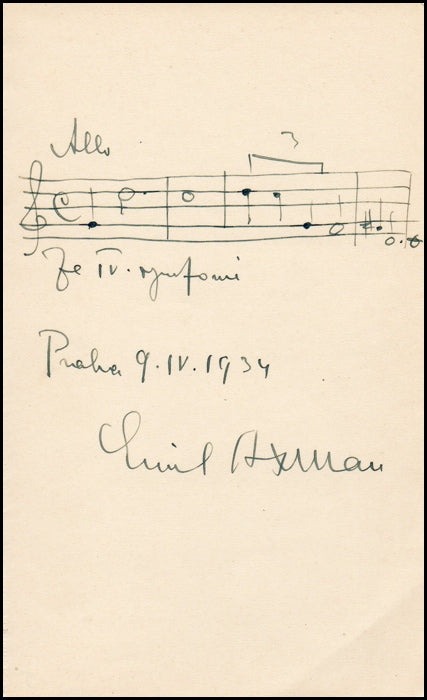 Allo
3
Ze IV. symfonie
Praha 9.IV.1934
Emil Axman